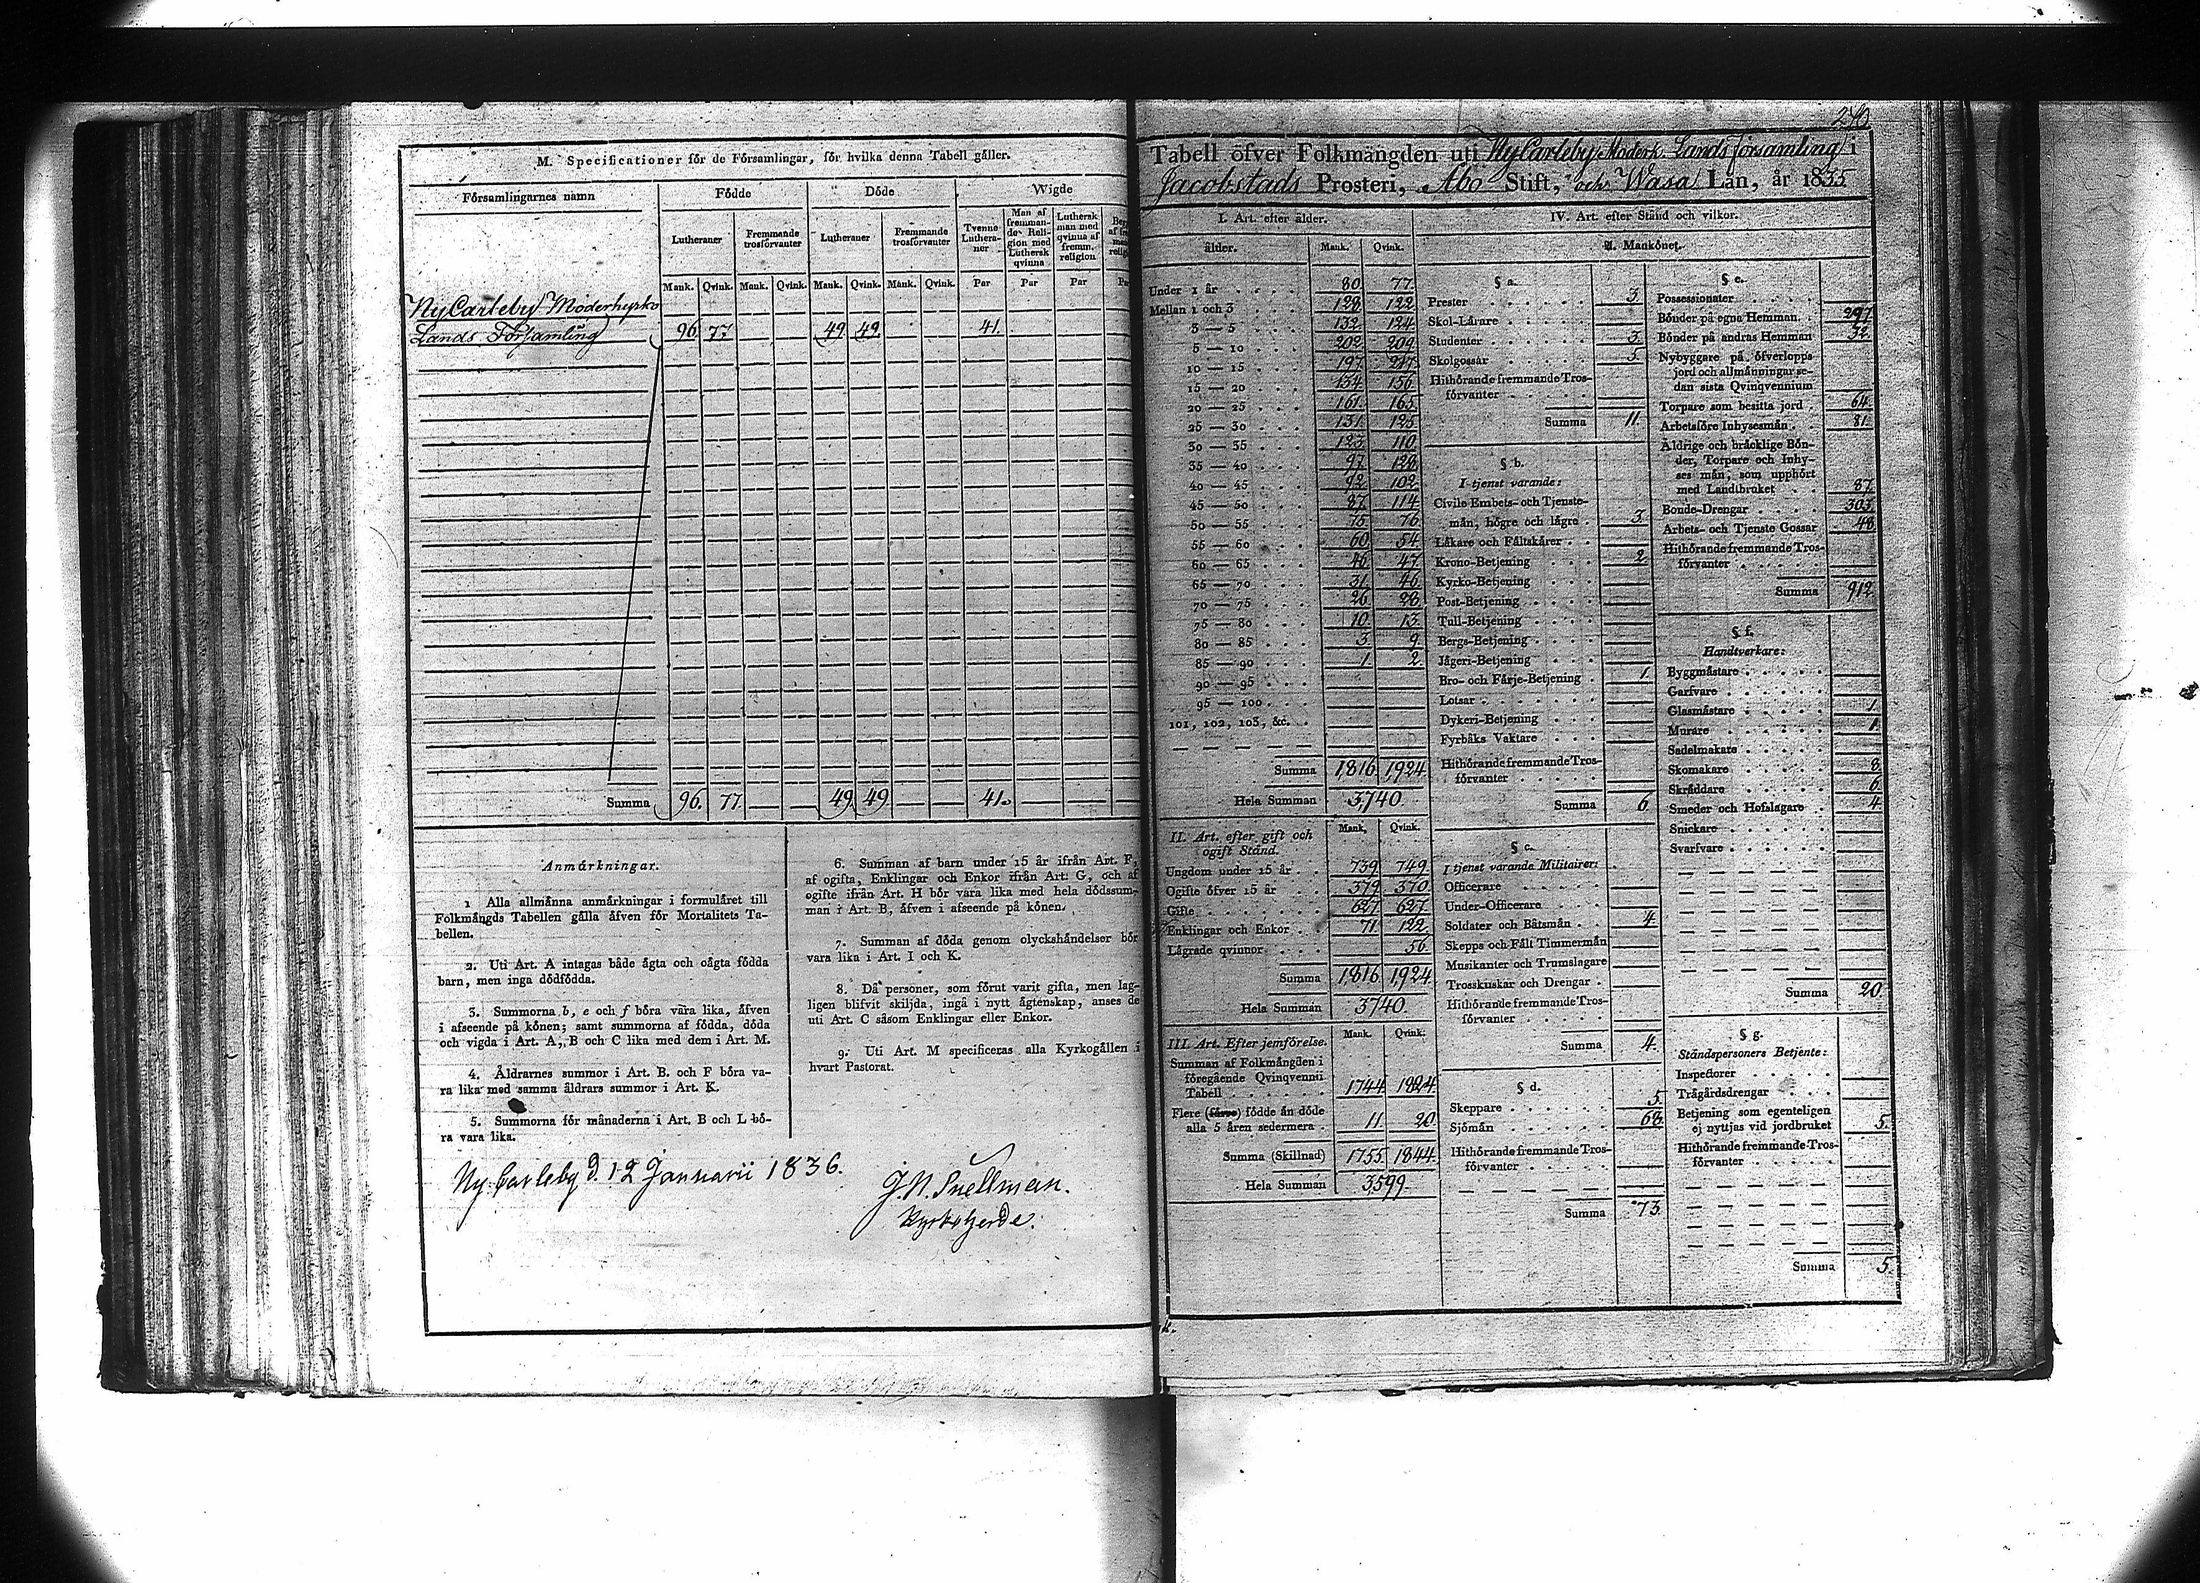 M. Specificationer för de Församlingar, för hvilka denna Tabell gäller.
Församlingarnes namn Födde Döde Wigde
Lutheraner Fremmande trosförvanter Lutheraner Fremmande trosförvanter Tvenne Lutheraner Man af fremmande Religion med Luthersk qvinna Luthersk man med qvinna af fremm. religion
Mank. Qvink. Mank. Qvink. Mank. Qvink. Mank. Qvink. Par Par Par
NyCarleby Moderkyrko
Lands Församling 96. 77. 49. 49. 41.
Summa 96. 77. 49. 49. 41.
Anmärkningar.
1 Alla allmänna anmärkningar i formuläret till
Folkmängds Tabellen gälla äfven för Mortalitets Ta-
bellen.
2. Uti Art. A intagas både ägta och oägta födda
barn, men inga dödfödda.
3. Summorna b, e och f böra vara lika, äfven
i afseende på könen; samt summorna af födda, döda
och vigda i Art. A, B och C lika med dem i Art. M.
4. Åldrarnes summor i Art. B. och F böra va-
ra lika med samma åldrars summor i Art. K.
5. Summorna för månaderna i Art. B och L bö-
ra vara lika.
6. Summan af barn under 15 år ifrån Art. F,
af ogifta, Enklingar och Enkor ifrån Art: G, och af
ogifte ifrån Art. H bör vara lika med hela dödssum-
man i Art. B, äfven i afseende på könen.
7. Summan af döda genom olyckshändelser bör
vara lika i Art. I och K.
8. Då personer, som förut varit gifta, men lag-
ligen blifvit skiljda, ingå i nytt ägtenskap, anses de
uti Art. C såsom Enklingar eller Enkor.
9. Uti Art. M specificeras alla Kyrkogällen i
hvart Pastorat.
Ny Carleby d. 12 Januarii 1836.
J. N. Snellman.
Kyrkoherde.
Tabell öfver Folkmängden uti NyCarleby Moderk. Lands församling i
Jacobstads Prosteri, Åbo Stift, och Wasa Län, år 1835
I. Art. efter ålder.
ålder. Mank. Qvink.
Under 1 år 80. 77.
Mellan 1 och 3 128 122.
3 — 5 132. 124.
5 — 10 202. 209.
10 — 15 197. 217.
15 — 20 134. 156.
20 — 25 161. 165.
25 — 30 131. 125.
30 — 35 123. 110.
35 — 40 97. 128.
40 — 45 92. 102.
45 — 50 87. 114
50 — 55 75 76.
55 — 60 60. 54.
60 — 65 46. 47.
65 — 70 31. 46.
70 — 75 26. 28.
75 — 80 10. 13.
80 — 85 3. 9.
85 — 90 1. 2.
90 — 95
95 — 100
101, 102, 103, &c.
Summa 1,816. 1,924.
Hela Summan 3,740.
II. Art. efter gift och
ogift Stånd. Mank. Qvink.
Ungdom under 15 år 739. 749.
Ogifte öfver 15 år 379. 370.
Gifte 627. 627.
Enklingar och Enkor 71. 122.
Lägrade qvinnor 56.
Summa 1,816 1,924.
Hela Summan 3,740.
III. Art. Efter jemförelse. Mank. Qvink.
Summan af Folkmängden i
föregående Qvinqvennii
Tabell 1744. 1824.
Flere (färre) födde än döde
alla 5 åren sedermera 11. 20.
Summa (Skillnad) 1755. 1844.
Hela Summan 3,599.
IV. Art. efter Stånd och vilkor.
A. Mankönet.
§ a.
Prester 3.
Skol-Lärare
Studenter 3.
Skolgossar 5.
Hithörande fremmande Tros-
förvanter
Summa 11.
§ b.
I tjenst varande:
Civile Embets- och Tjenste-
män, högre och lägre 3.
Läkare och Fältskärer
Krono-Betjening 2.
Kyrko-Betjening
Post-Betjening
Tull-Betjening
Bergs-Betjening
Jägeri-Betjening
Bro- och Färje-Betjening 1.
Lotsar
Dykeri-Betjening
Fyrbåks Vaktare
Hithörande fremmande Tros-
förvanter
Summa 6.
§ c.
I tjenst varande Militairer:
Officerare
Under-Officerare
Soldater och Båtsmän 4.
Skepps och Fält Timmermän
Musikanter och Trumslagare
Trosskuskar och Drengar
Hithörande fremmande Tros-
förvanter
Summa 4.
§ d.
Skeppare 5.
Sjömän 68.
Hithörande fremmande Tros-
förvanter
Summa 73.
§ e.
Possessionater
Bönder på egna Hemman 297.
Bönder på andras Hemman 32.
Nybyggare på öfverlopps
jord och allmänningar se-
dan sista Qvinqvennium
Torpare som besitta jord 64.
Arbetsföre Inhysesmän 81.
Äldrige och bräcklige Bön-
der, Torpare och Inhy-
ses män, som upphört
med Landtbruket 87.
Bonde-Drengar 303.
Arbets- och Tjenste Gossar 48.
Hithörande fremmande Tros-
förvanter
Summa 912.
§ f.
Handtverkare:
Byggmästare
Garfvare
Glasmästare 1.
Murare 1.
Sadelmakare
Skomakare 8.
Skräddare 6.
Smeder och Hofslagare 4.
Snickare
Svarfvare
Summa 20.
§ g.
Ståndspersoners Betjente:
Inspector
Trägårdsdrengar
Betjening som egenteligen
ej nyttjas vid jordbruket 5.
Hithörande fremmande Tros-
förvanter
Summa 5.